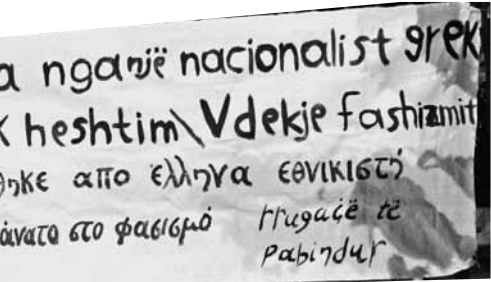 a nga një nacionalist grek
heshtim\ Vdekje fashizmit
θηκε απο έλληνα εθνικιστή
άνατο στο φασισμό rrugaçë të
pabindur